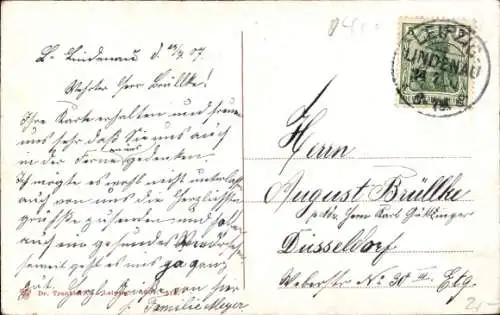 L. Lindenau d. 24/7 07
Wehrter Herr Brüllke!
Ihre Karte erhalten und freuen
uns sehr daß Sie uns auch
in der Ferne gedenken.
Ich möchte es wohl nicht unterlassen
auch von uns die herzlichsten
Grüße zu senden und
auf ein gesundes
soweit geht es uns ja ganz
gut. von hier
Familie Meyer
Dr. Trenkler Leipzig
LEIPZIG
LINDENAU
24 7
Herrn
August Brüllke
p. Adr. Herrn Karl Güttinger
Düsseldorf
Weberstr No 30 III Etg.
2,-